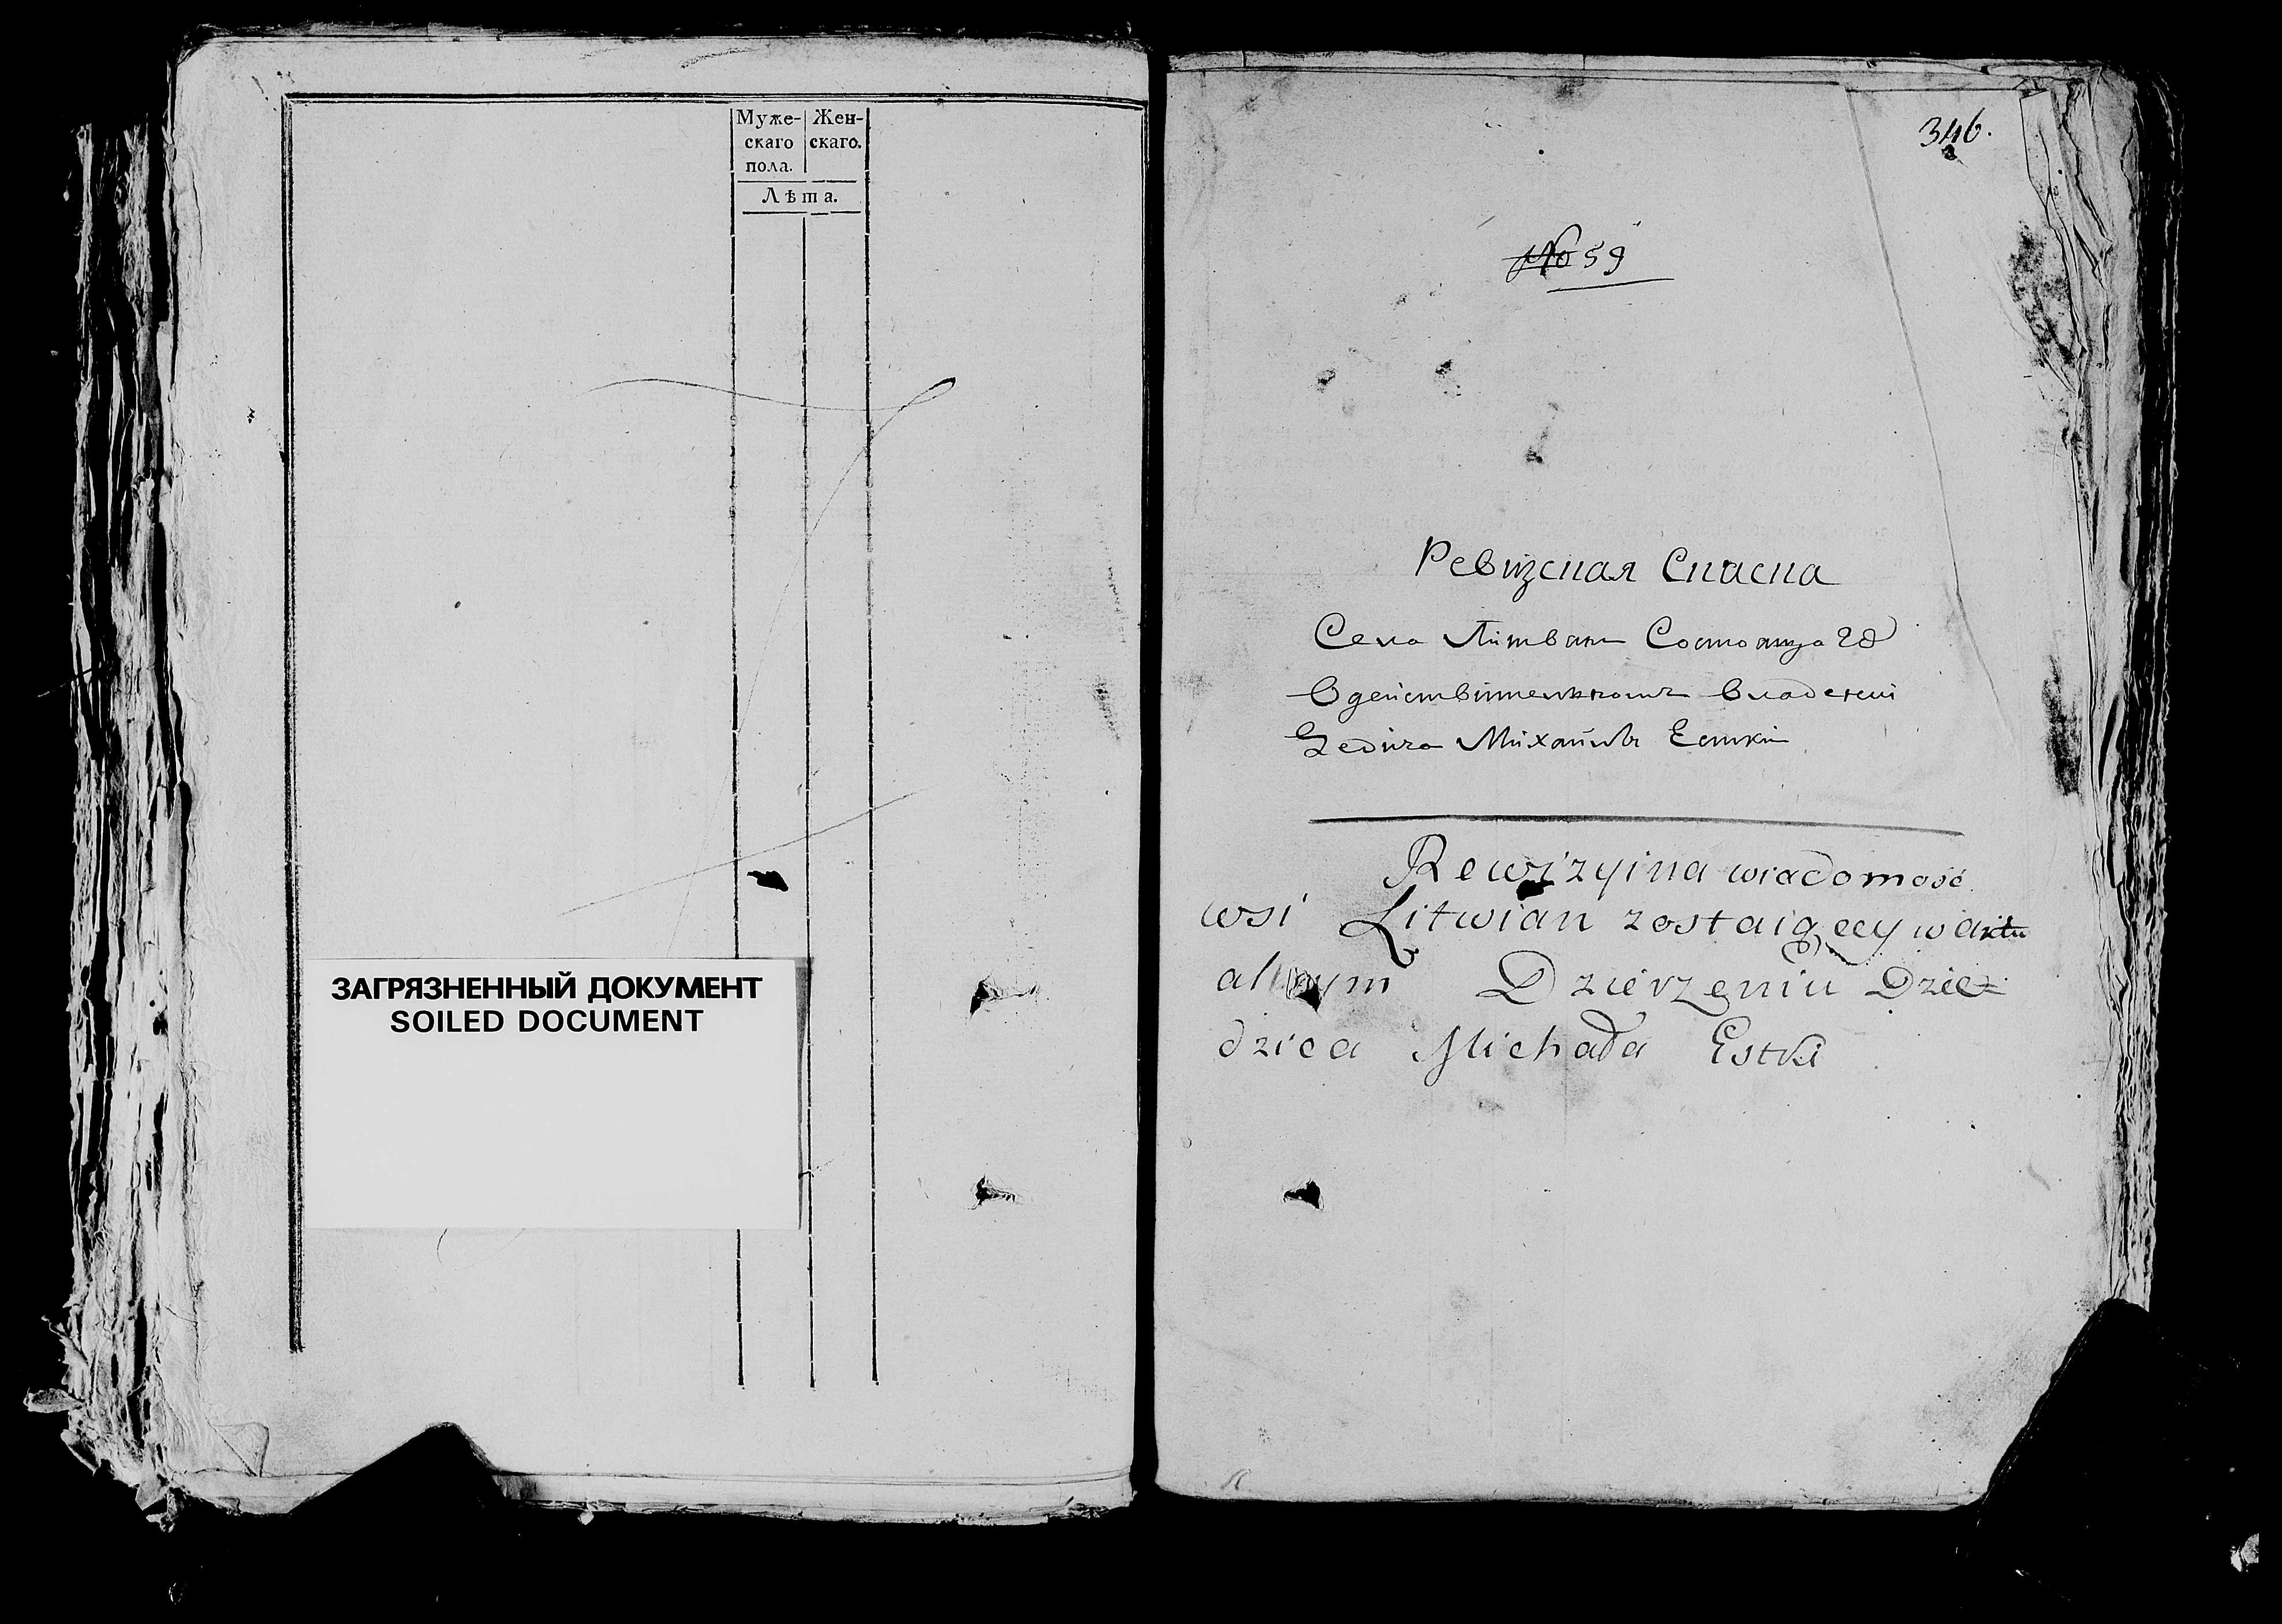 Муже- Жен-
скаго скаго.
пола.
Лѣта.
ЗАГРЯЗНЕННЫЙ ДОКУМЕНТ
SOILED DOCUMENT
346.
№ 59
Ревизская Скаска
Села Литвян
Вдействителномъ владении
Дедича Михаила Естки
Rewizyina wiadomość
wsi Litwian zostaiącey w aktu
alnym Dzierzeniu Dzie-
dzica Michała Estki